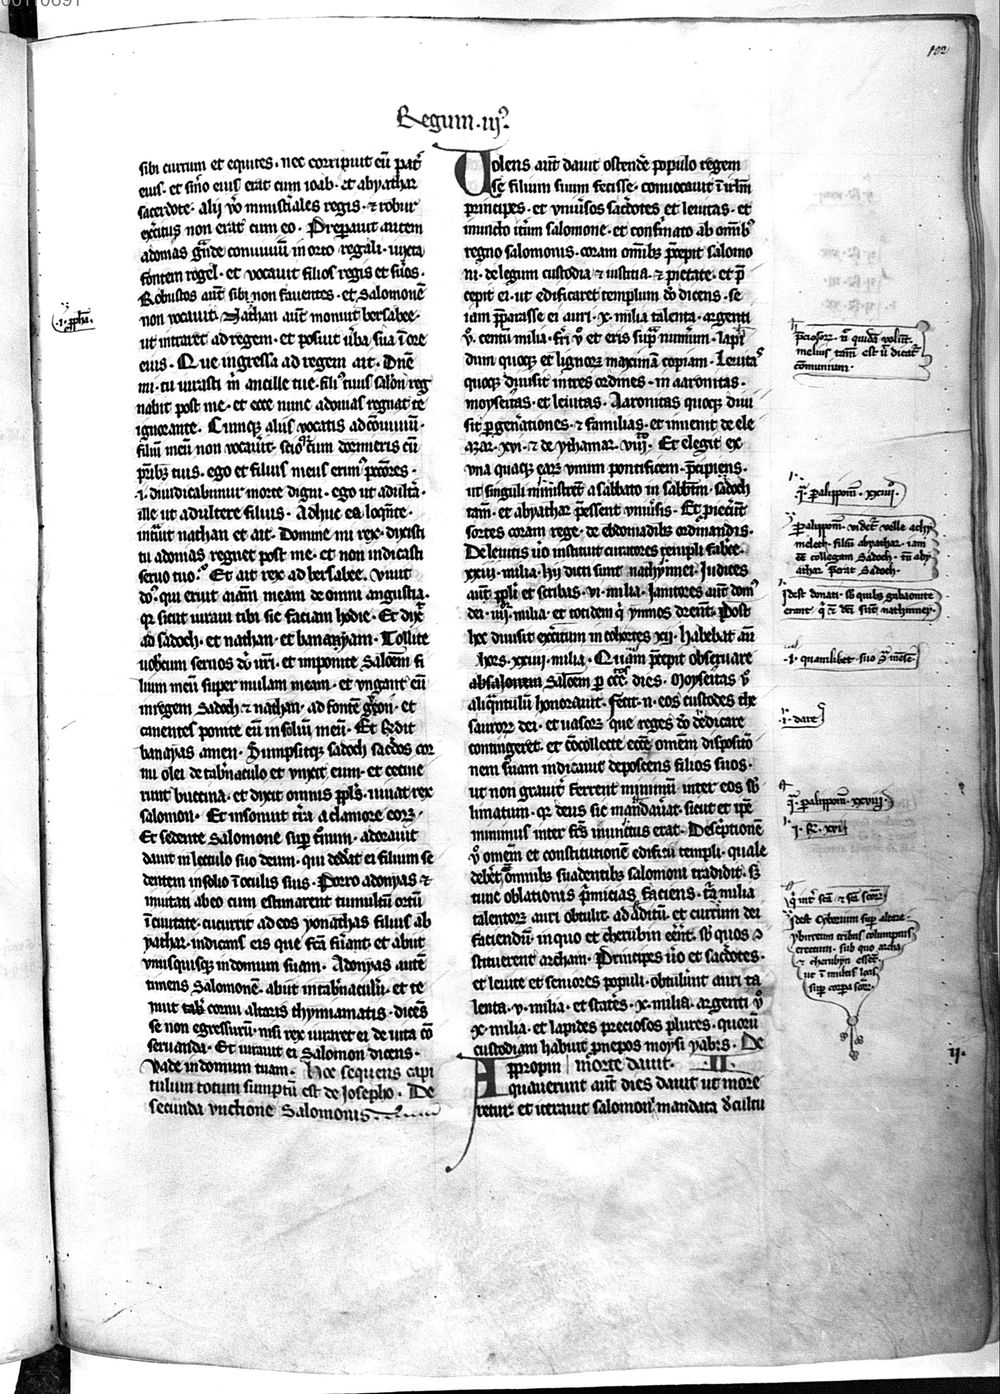 102
Regum·iijꝰ·
sibi currum et equites· nec corripuit eū pat̄
eius· et sim̄o eius erat cum ioab· et abyathar
sacerdote· alii v̄o ministiales regis· ⁊ robur
exc̄itus non erat cum eo· Preparauit autem
adonias g̃nde conuiuiuū in orto regali· iuxta
fontem rogel· et vocauit filios regis et fuos·
Robustos aūt sibi non fauentes· et Salomonē
non vocauit· Nathan aūt monuit bersabee·
ut intraret ad regem· et posuit ūba sua ī ore
eius· Que ingressa ad regem ait· Dn̄e
mi· tu iurasti m̄ ancille tue· filiꝰ tuus salōn reg
nabit post me· et ecce nunc adonias regnat te
ignorante· Cumqꝫ aliis vocatis ad ꝯuiuiū·
filiū meū non vocauit· scioꝰ cum dormieris cū
pr̄ibꝫ tuis· ego et filius meus erimꝰ pctōres·
·i· diiudicabimur morte digni· ego ut adult̄a·
ille ut adultere filius· Adhuc ea loqn̄te·
intuit nathan et ait· Domine mi rex· dixisti
tu adonias regnet post me· et non indicasti
seruo tuo· Et ait rex ad bersabee· Viuit
do· qui eruit aīam meam de omni angustia·
qꝛ sicut iuraui tibi sic faciam hodie· Et dix̄
ad sadoch· et nathan· et bananyam· Tollite
uobcum seruos dō urī· et imponite Salōem fi
lium meū super mulam meam· et ungant eū
inregem Sadoch ⁊ nathan· ad fontē gyon· et
canentes ponite eū insoliū meū· Et sedit
banayas amen· Sumpsitqꝫ sadoch sac̄dos cor
nu olei de tab̄naculo et vnxit eum· et cecine
runt buccina· et dixit omnis pp̄ls· uiuat rex
salomon· Et insonuit tr̄a a clamore eoꝝ·
Et sedente Salomone suꝑ t̄num· adorauit
dauit in lectulo suo deum· qui ded̄at ei filium se
dentem insolio ī oculis suis· Porro adonyas ⁊
inuitati abeo cum estimarent tumultū ortū
ī ciuitate· cucurrit ad eos yonathas filius ab
yathar· indicans eis que fcā fuāant· et abiit
vnusquisqꝫ indomum suam· Adonyas autē
timens Salomonē· abiit intab̄naculū· et te
nuit tab̄ cornu altaris thymiamatis· dicēs
se non egressurū· nisi rex iuraret ei de uita cō
seruanda· Et iurauit ei Salomon dicens·
Vade indomum tuam· Hoc sequens capi
tulum totum sumptū est de Josepho· De
secunda vnctione Salomonis
Volens aūt dauit ostendē populo regem
se filium suum fecisse· conuocauit ī irl̄m
principes· et vniūsos sac̄dotes et leuitas· et
inuncto itm̄ salomone· et confirmato ab omibꝫ
regno salomonis· coram omibꝫ p̄cepit salomo
ni· de legum custodia ⁊ iusticia· ⁊ pietate· et p̄
cepit ei· ut edificaret templum dō dicens· se
iam p̄parasse ei auri· x· milia talenta· argenti
v̄· centū milia· fr̄i v̄· et eris supᵃ numerum· lapi
dum quoqꝫ et lignoꝝ maximā copiam· Leuitas
quoqꝫ diuisit intres ordines· in aaronitas·
moyseitas· et leuitas· Aaronitas quoqꝫ diui
sit ꝑ gen̄ationes· ⁊ familias· et inuenit de ele
azar· xvi· ⁊ de ythamar· viij· Et elegit ex
vna quaqꝫ eaꝝ vnum pontificem· p̄cipiens·
ut singuli ministrēt a sabbato in sabbm̄· sadoch
tam̄· et abyathar p̄essent vniūsis· Et piec̄ūt
sortes coram rege· de ebdomadibꝫ ordinandis·
De leuitis ūo instituit curatores templi fabce·
xxiij· milia· hij dicti sunt nathynnei· Judices
aūt pp̄li et scribas· vi· milia· Janitores aūt domꝰ
dei· iiij· milia· et totidem q̄ ymnos dicent· Post
hec diuisit exc̄itum in cohortes xij· Habebat aū
hors· xxiiij· milia· Quam p̄cepit obseruare
absalonem Salōem ꝑ ccc· dies· Moyseitas v̄
aliqn̄tulū honorauit· Fecit· n· eos custodes the
sauroꝝ dei· et vasoꝝ que reges dō dedicare
contingeret· et cōcollecte eccē omēm disposicō
nem suam indicauit deposcens filios suos·
ut non grauit̄ ferrent minimū inter eos sb̄
limatum· qꝛ deus sic mandauat· sicut et ip̄e
minimus inter fr̄s inunctus erat· Desc̄ptionē
v̄ omēm et constitutionē edificii templi· quale
deb̄et omibꝫ suadentibꝫ salomoni tradidit· sꝫ
tunc oblationis p̄micias faciens· tᵃ milia
talentoꝝ auri obtulit ad aditū· et currum dei
faciendū· inquo et cherubin eēnt· sb̄ quos ꝯ
stituerent archam· Principes ūo et sac̄dotes·
et leuite et seniores populi· obtulūnt auri ta
lenta· v· milia· et stat̄es· x· milia· argenti v̄
x· milia· et lapides preciosos plures· quoꝝ
custodiam habuit ꝓnepos moysi yabꝫs· De
morte dauit· II·
Appropin
quauerunt aūt dies dauit ut more
retur· et iterauit salomoni mandata d̄ cultu
·i· ꝓpha·
p̄ciosoꝝ· n̄ quidā volūt·
melius tam̄ est ū dicat̄
communium·
·i· q̄· paralippom̄· xxiiij·
paralippom̄· videt̄ velle achy
melech· filiū abyathar· iam
eē collegam Sadoch· n̄ aby
athar p̄erat Sadoch·
idest donati· sb̄ quibꝫ gabaonite
erant· q̄ ē· dei sūt nathynney·
·i· quamlibet suo q̄ mēse
·i· dare
·i· q̄· paralippom̄· xxviij·
·i· p̄· xxi
q̄ int̄ scā ⁊ scā scōꝝ
idest Cyborium suꝑ altare
ybireum tribus columpnis
erectum· sub quo archa
⁊ cherubyn essēt·
ut ī multis locis
suꝑ corꝑa scōꝝ·
ij·